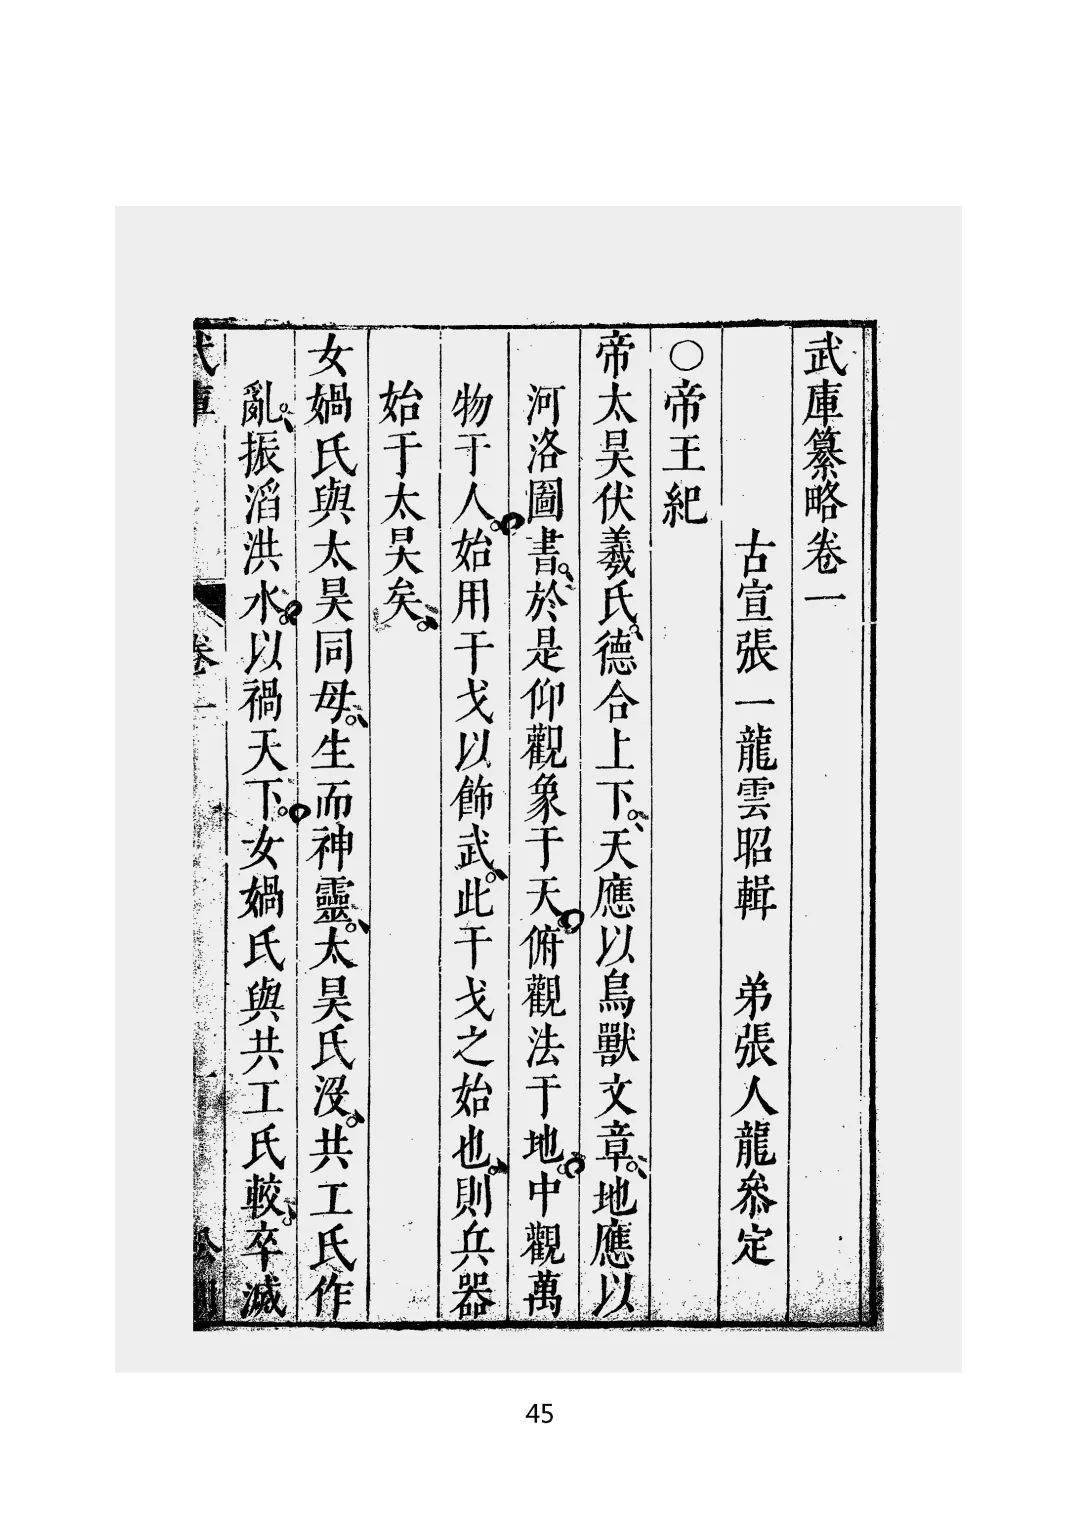 武庫纂略卷一
古宣張一龍雲昭輯　弟張人龍叅定
○帝王紀
帝太昊伏羲氏德合上下天應以鳥獸文章地應以
河洛圖書於是仰觀象于天俯觀法于地中觀萬
物于人始用干戈以飾武此干戈之始也則兵器
始于太昊矣
女媧氏與太昊同母生而神靈太昊氏沒共工氏作
亂振滔洪水以禍天下女媧氏與共工氏較卒滅
武庫 卷一
45